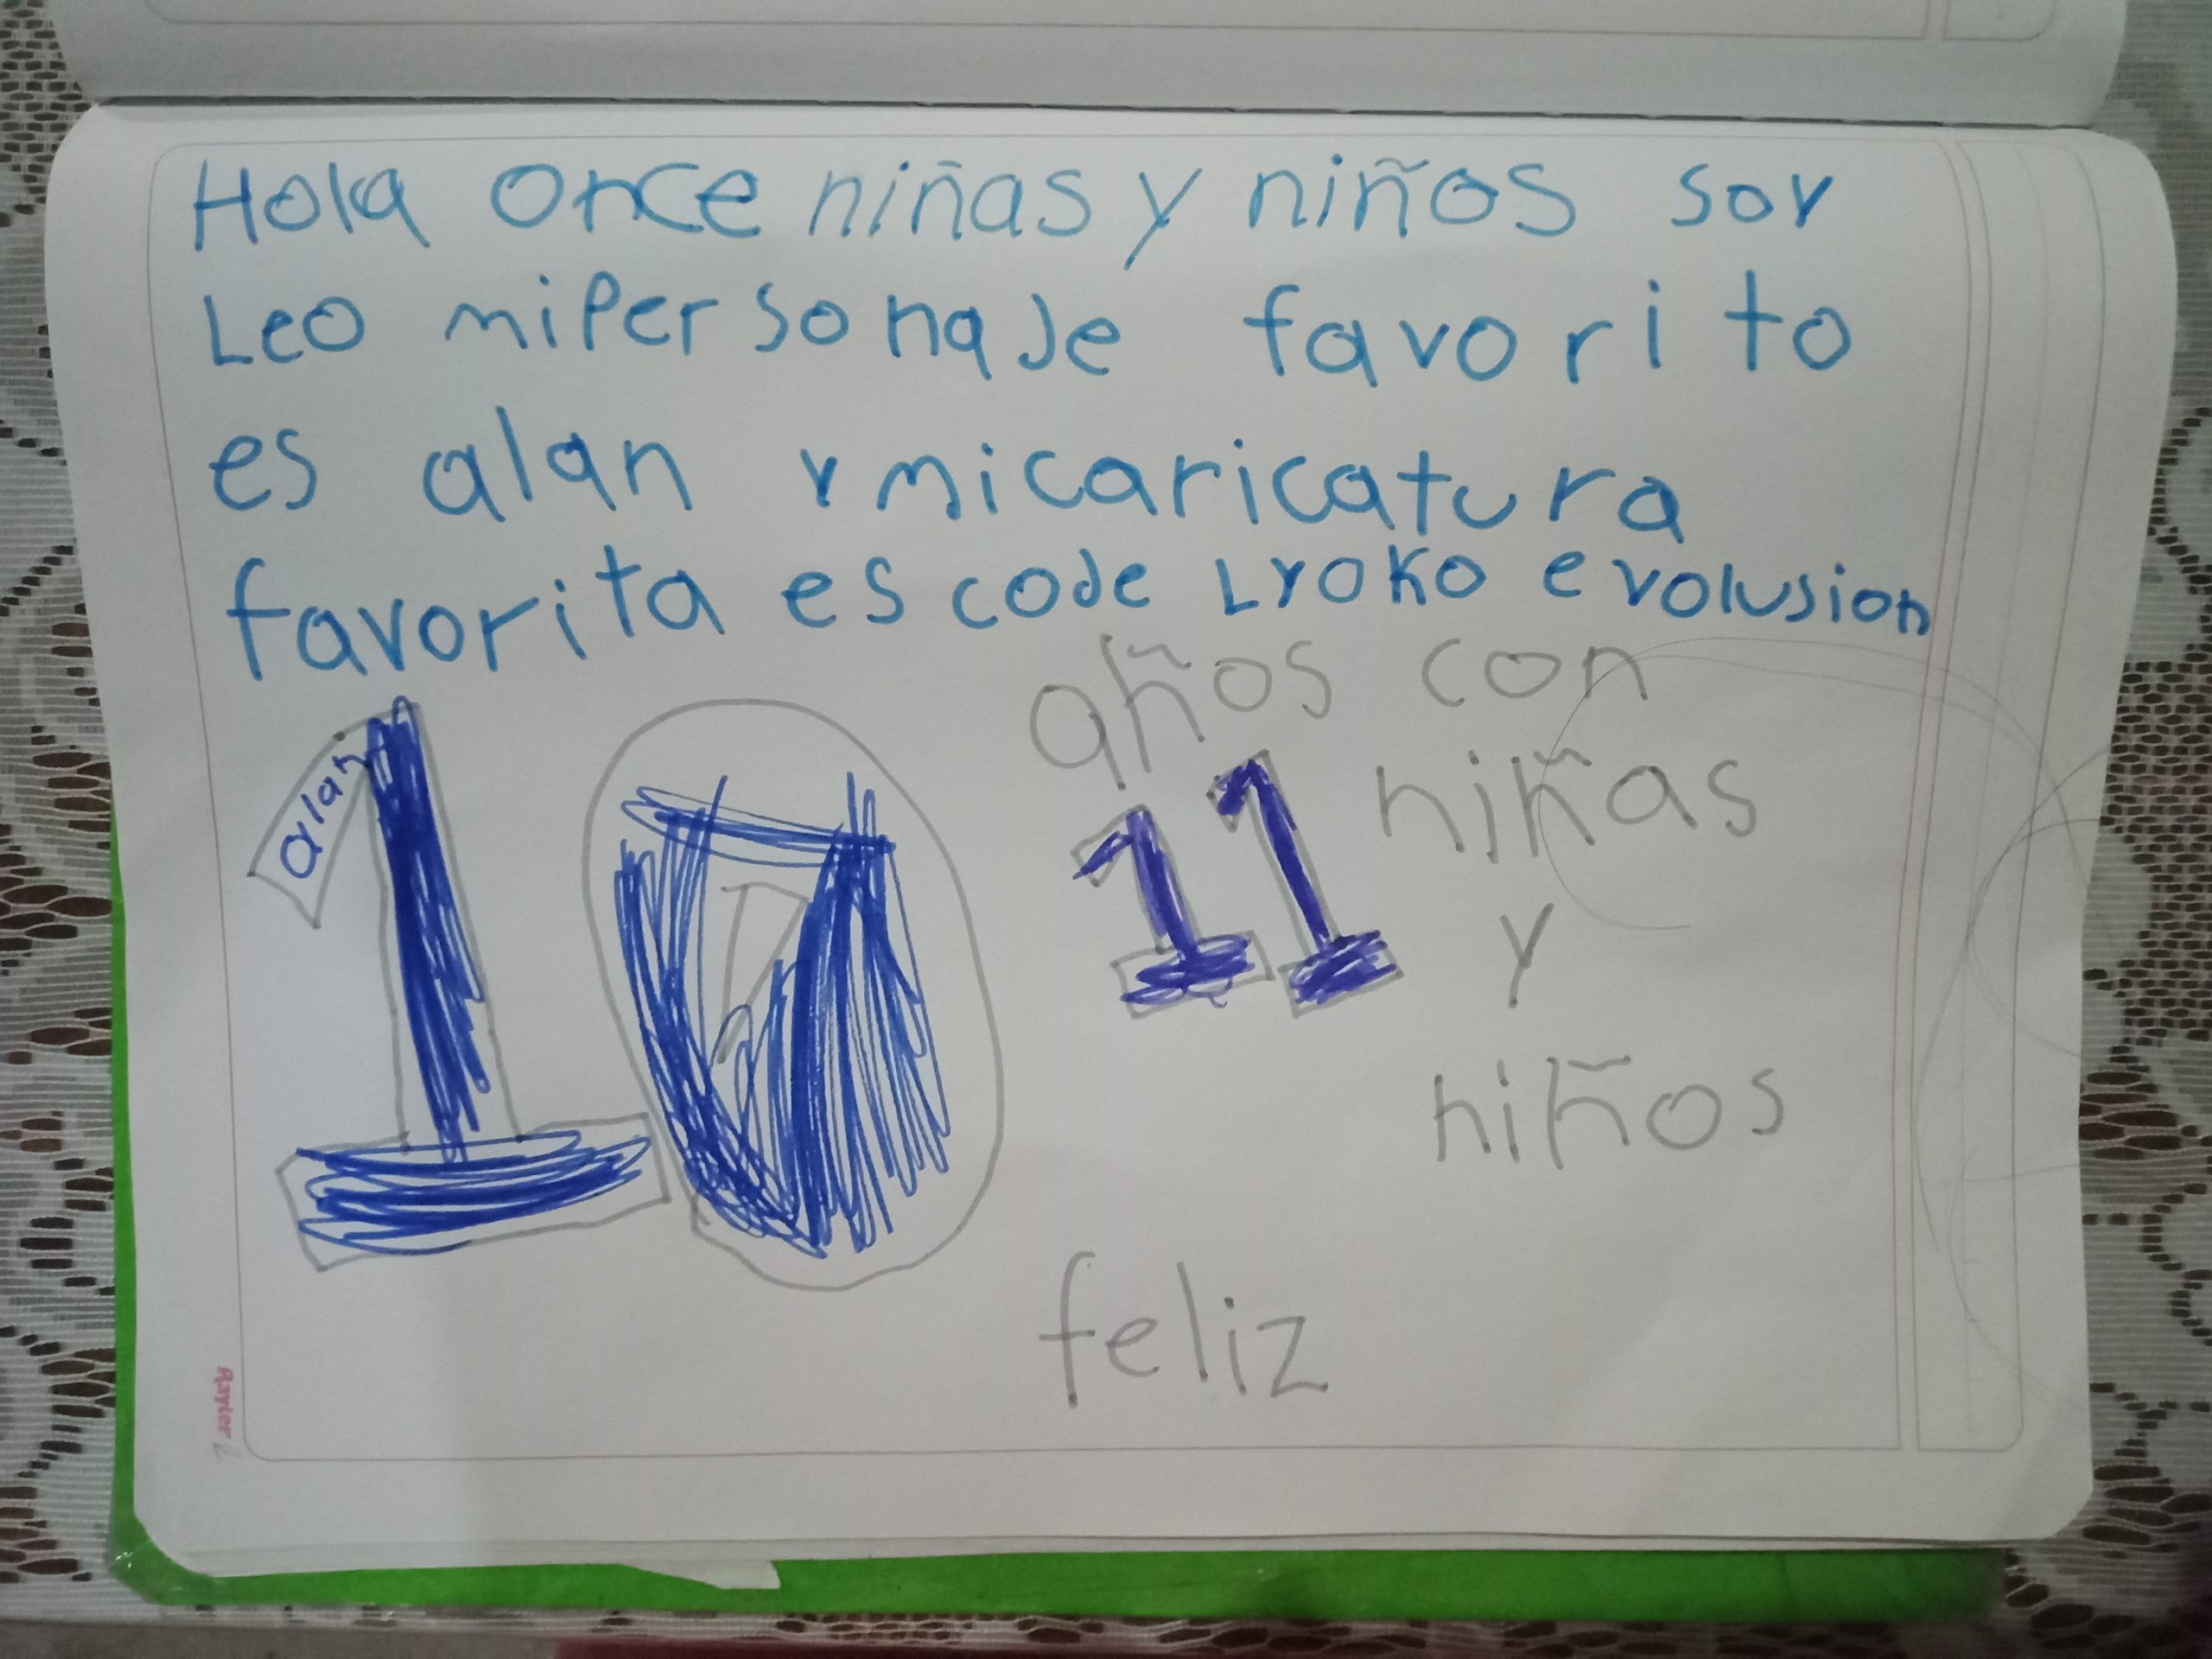 Hola once niñas y niños soy
Leo mipersonaje favorito
es alan y micaricatura
favorita es code Lyoko evolusion
alan
10 años con
11 niñas
y
niños
feliz
Rayter